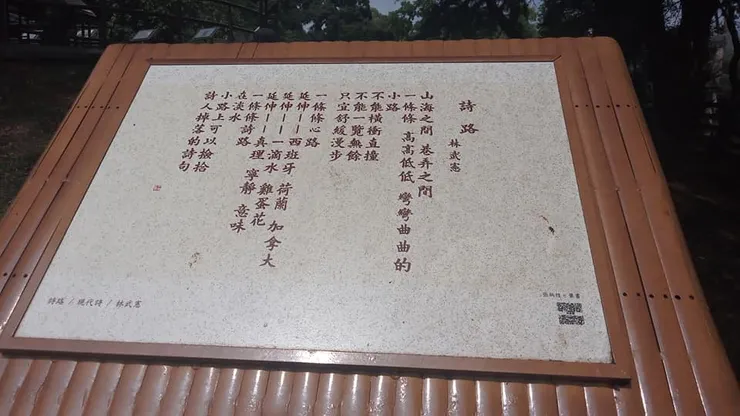 詩路
林武憲
山海之間 巷弄之間
一條條 高高低低 彎彎曲曲的
小路
不能橫衝直撞
不能一覽無餘
只宜舒緩漫步
一條條心路
延伸——西班牙 荷蘭 加拿大
延伸——一滴水 雞蛋花
延伸——真理 寧靜 意味
一條條詩路
在淡水
小路上可以撿拾
詩人掉落的詩句
詩路 / 現代詩 / 林武憲